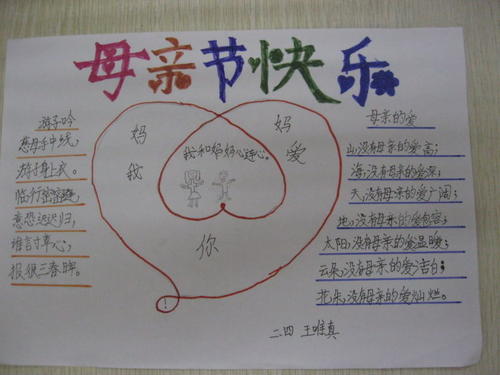 母亲节快乐
游子吟
慈母手中线,
游子身上衣。
临行密密缝,
意恐迟迟归,
谁言寸草心,
报很三春晖。
妈 妈
我 爱
我和妈妈心连心。
你
!
母亲的爱
山,没有母亲的爱高;
海,没有母亲的爱深;
天,没有母亲的爱广阔;
地,没有母亲的爱包容;
太阳,没有母亲的爱温暖;
云朵,没有母亲的爱洁白;
花朵,没有母亲的爱灿烂。
二四 王唯真